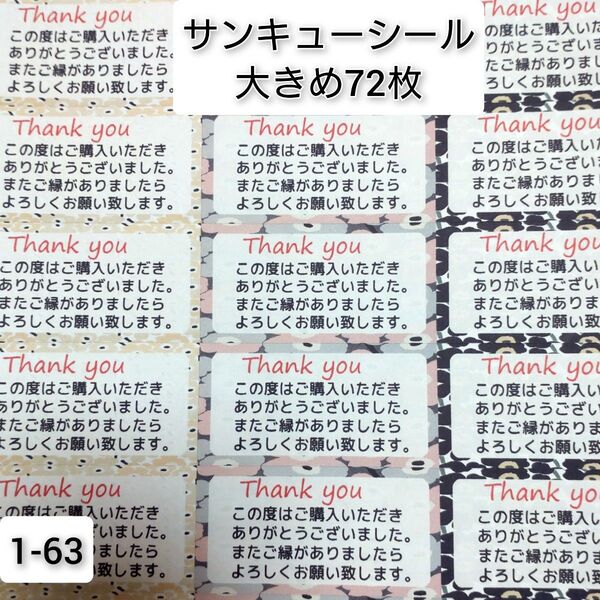 サンキューシール
大きめ72枚
Thank you
この度はご購入いただき
ありがとうございました。
またご縁がありましたら
よろしくお願い致します。
hank you
の度はご購入い
りがとうござい
たご縁があり
ろしくお願い致
Thank you
この度はご購入いただき
ありがとうございました。
またご縁がありましたら
よろしくお願い致します。
Thank you
この度はご購入いただき
ありがとうございました。
またご縁がありましたら
よろしくお願い致します。
Thank you
この度はご購入い
ありがとうござい
またご縁がありま
よろしくお願い致
Thank you
この度はご購入いただき
ありがとうございました。
またご縁がありましたら
よろしくお願い致します。
Thank you
この度はご購入いただき
ありがとうございました。
またご縁がありましたら
よろしくお願い致します。
Thank you
この度はご購入い
ありがとうござい
またご縁がありま
よろしくお願い致
Thank you
この度はご購入いただき
ありがとうございました。
またご縁がありましたら
よろしくお願い致します。
Thank you
この度はご購入いただき
ありがとうございました。
またご縁がありましたら
よろしくお願い致します。
Thank you
この度はご購入い
ありがとうござい
またご縁がありま
よろしくお願い致
Thank you
この度はご購入いただき
うございました。
がありましたら
お願い致します。
Thank you
この度はご購入いただき
ありがとうございました。
またご縁がありましたら
よろしくお願い致します。
Thank you
この度はご購入い
ありがとうござい
またご縁がありま
よろしくお願い致
1-63